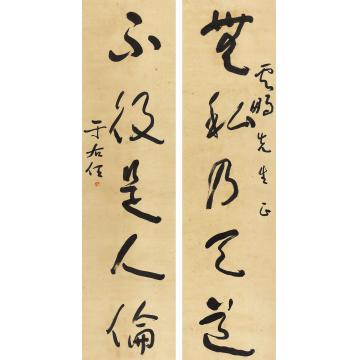 雲鵬先生正
無私乃天道
不役是人倫
于右任